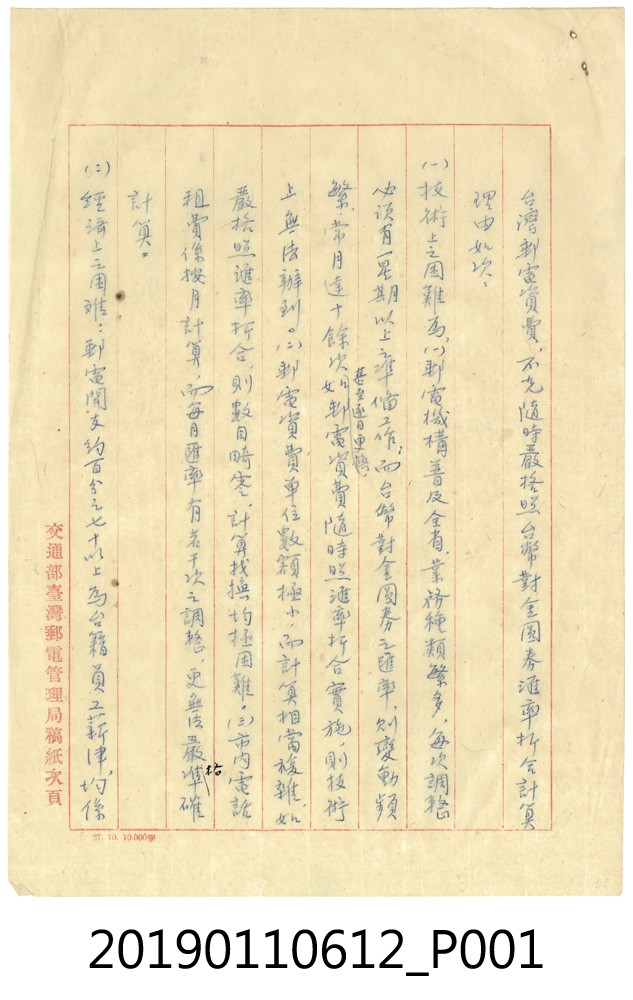 台灣郵電資費,不允隨時嚴格照台幣對金圓券滙率折合計算
理由如次:
(一)技術上之困難為,(1)郵電機構普及全省,業務種類繁多,每次調整
必須有一星期以上之準備工作;而台幣對金圓券之匯率,則變動頻
繁,常月達十餘次,甚至逐日更轉,如郵電資費隨時照滙率折合實施,則技術
上無法辦到。(二)郵電資費單位數額極小,而計算相當複雜,如
嚴格照滙率折合,則數目畸零,計算找換均極困難。(三)市内電話
租費係按月計算,而每月匯率有若干次之調整,更無法嚴格準確
計算。
(二)經濟上之困难:郵電開支約百分之七十以上為台籍員工薪津,均係
交通部臺灣郵電管理局稿紙次頁
37. 10. 10.000張
20190110612_P001